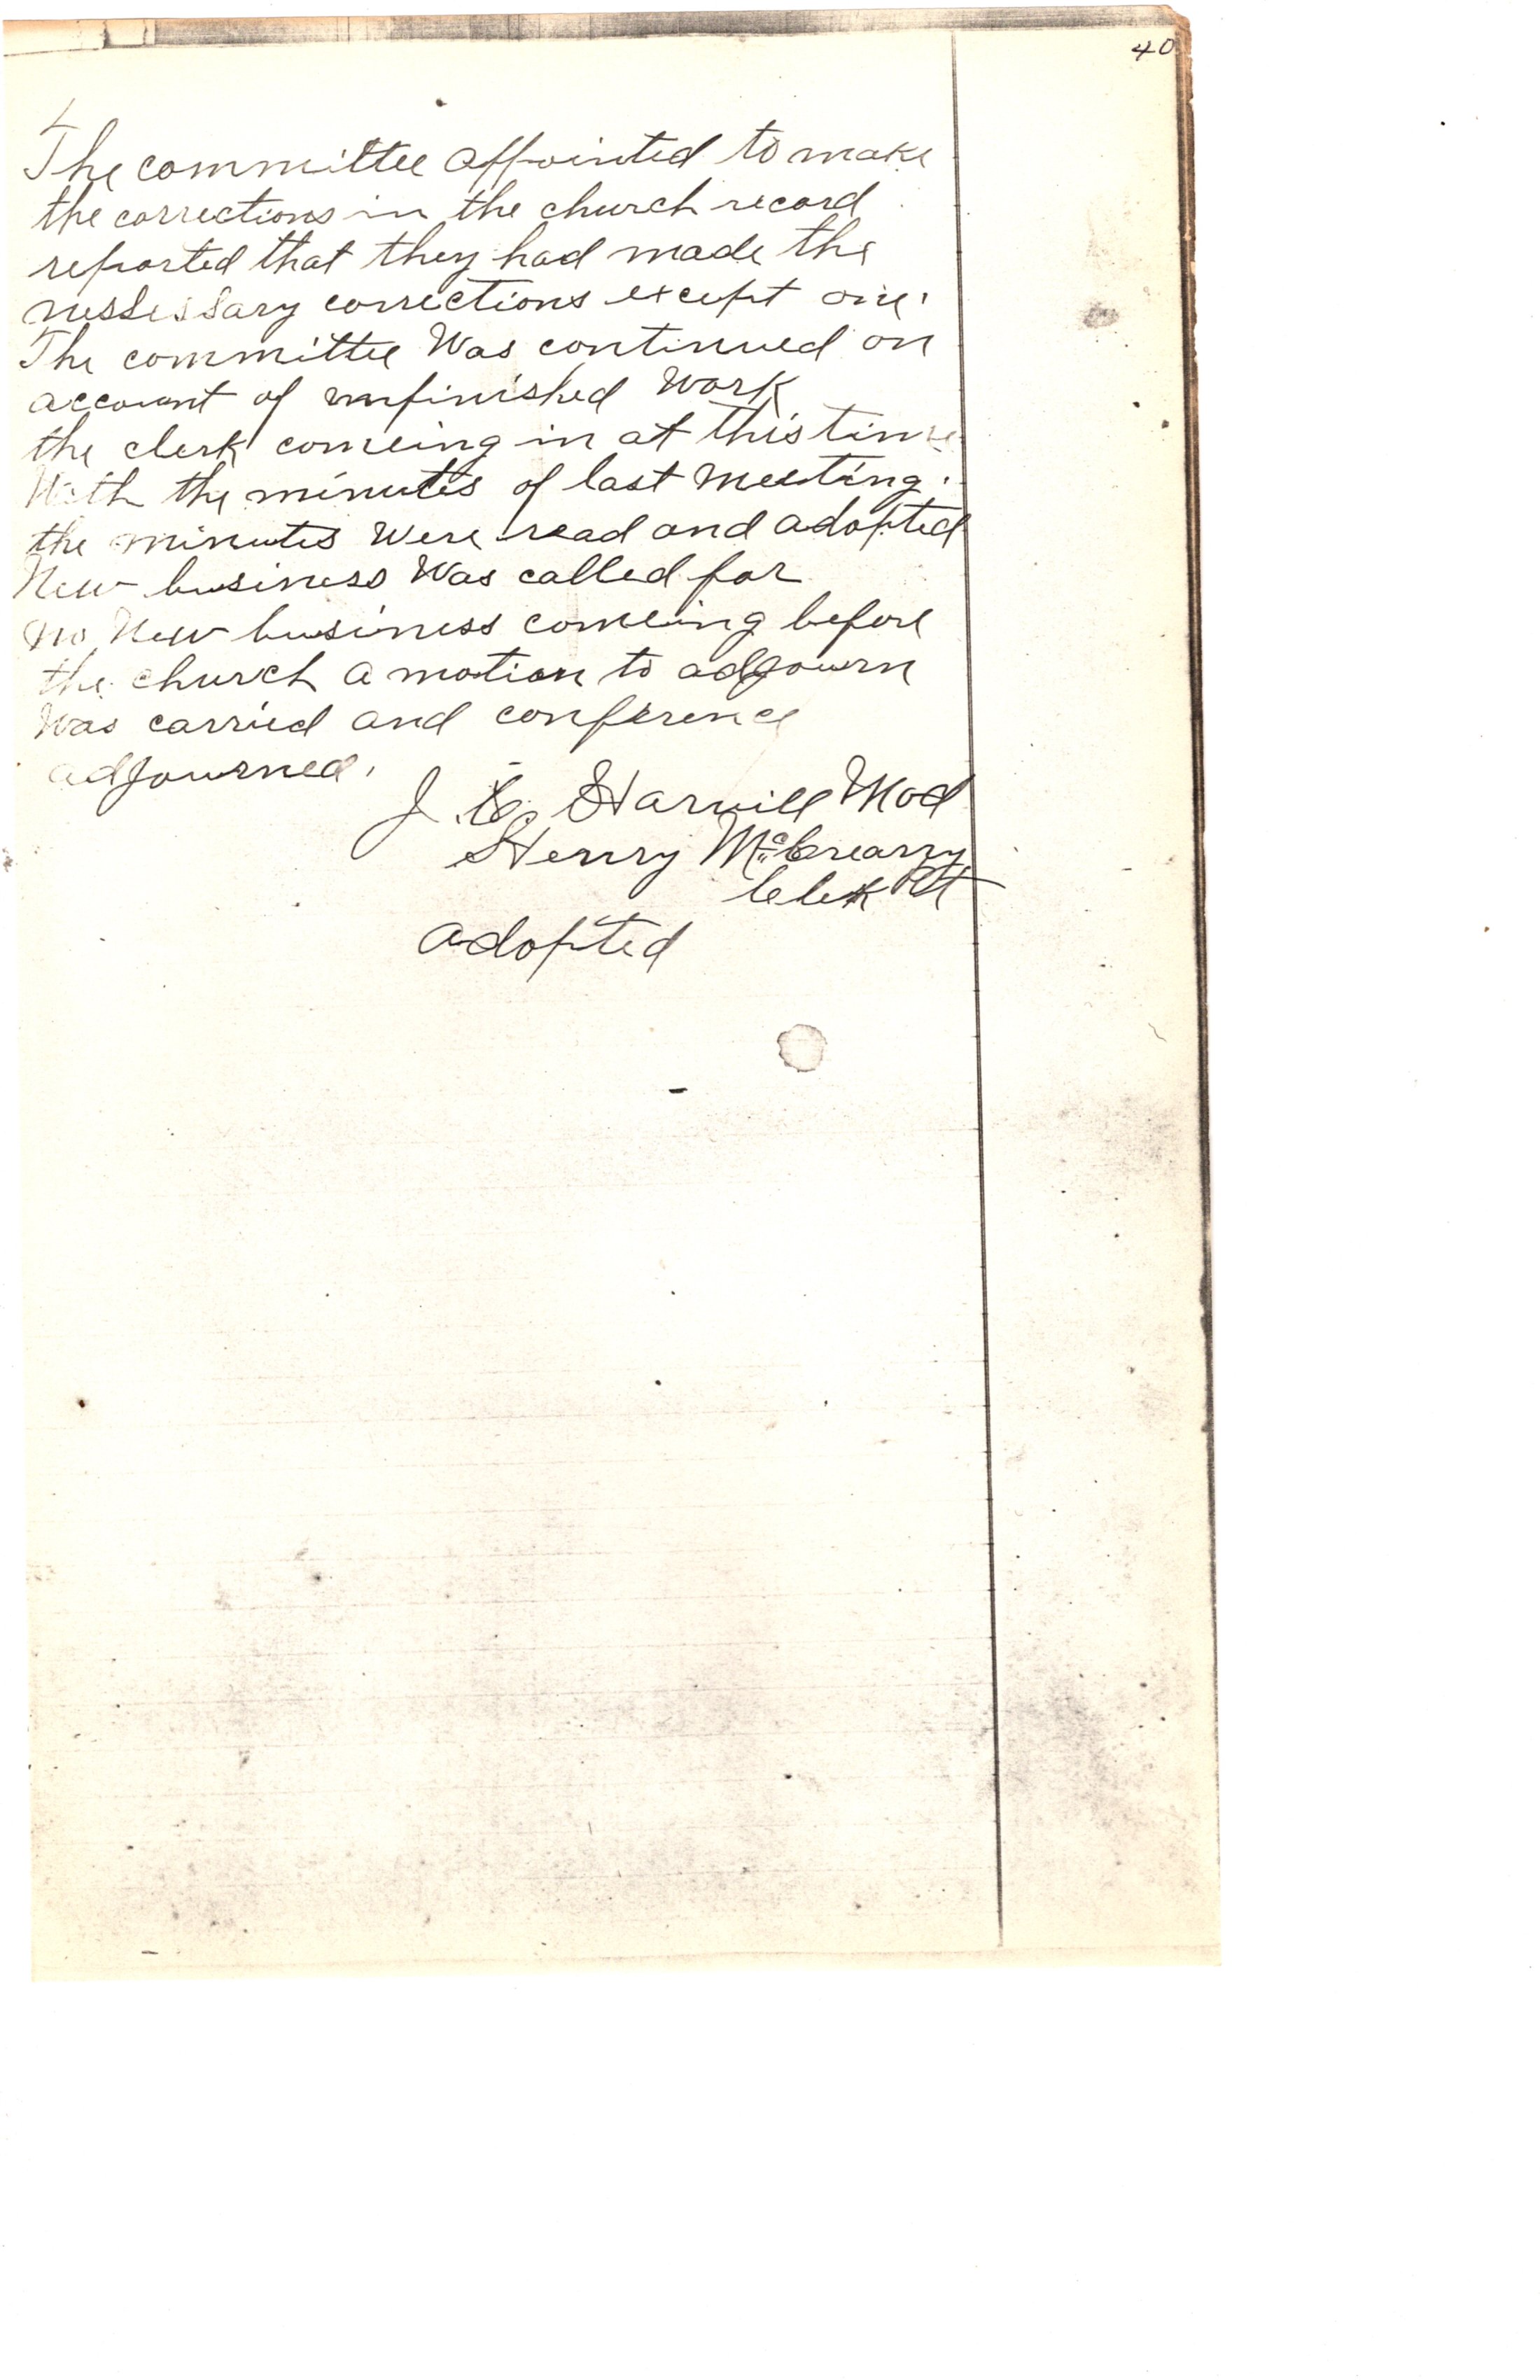 40
The committee appointed to make
the corrections in the church record
reported that they had made the
nessessary corrections except one.
The committee Was continued on
account of unfinished Work
the clerk comeing in at this time
With the minutes of last Meeting.
the minutes Were read and adopted
New business Was called for
no New business comeing before
the church a motion to adjourn
Was carried and conference
adjourned.
J. C. Harvill Mod
Henry McCrearry
Clerk
adopted